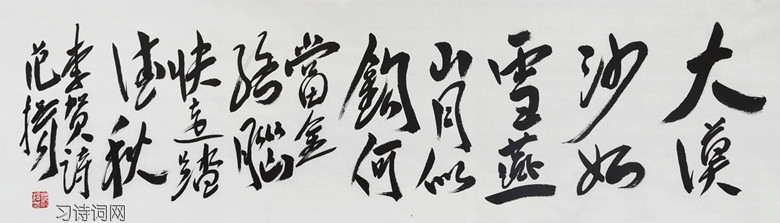 大漠
沙如
雪燕
山月似
鈎何
當金
絡腦
快走踏
清秋
李贺诗
范
习诗词网